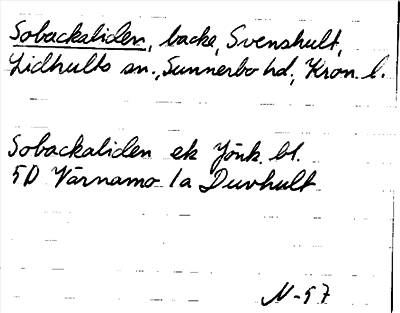 Sobackaliden, backe, Svenshult,
Lidhults sn., Sunnerbo hd, Kron. l.
Sobackaliden ek Jönk. bl.
5D Värnamo 1a Duvhult
N-57